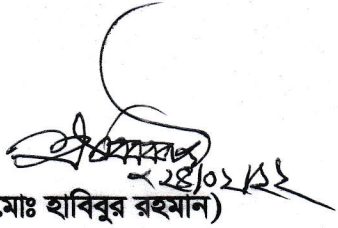 ২৪/০২/১২
মোঃ হাবিবুর রহমান)